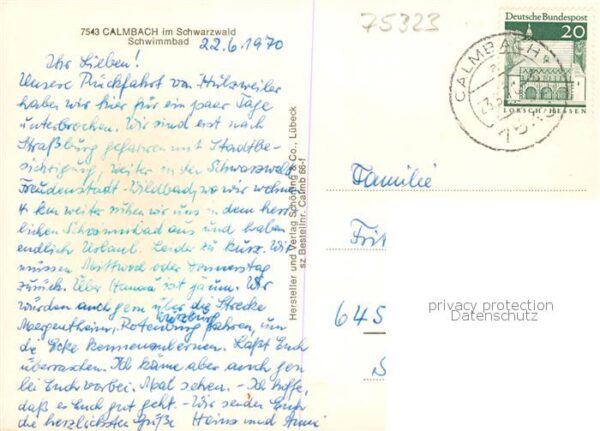 7543 CALMBACH im Schwarzwald
Schwimmbad
22.6.1970
75323
Ihr Lieben!
Unsere Rückfahrt von Hülzweiler
haben wir hier für ein paar Tage
unterbrochen. Wir sind erst nach
Straßburg gefahren mit Stadtbe-
sichtigung, weiter in den Schwarzwald
Freudenstadt - Wildbad, wo wir wohnen
4 km weiter ruhen wir uns in dem herr-
lichen Schwimmbad aus und haben
endlich Urlaub. Leider zu kurz. Wir
müssen Mittwoch oder Donnerstag
zurück. Über Hanau ist zu um. Wir
würden auch gern über die Strecke
Würzburg
Mergentheim, Rotenburg fahren, um
die Ecke kennenzulernen. Laßt Euch
überraschen. Ich käme aber auch gern
bei Euch vorbei. Mal sehen. - Ich hoffe,
daß es Euch gut geht. - Wir senden Euch
die herzlichsten Grüße Heinz und Anni
Hersteller und Verlag Schöning & Co., Lübeck
sz Bestellnr. Calmb 66-f
Deutsche Bundespost
20
LORSCH/HESSEN
CALMBACH
Familie
Frit
645
privacy protection
Datenschutz